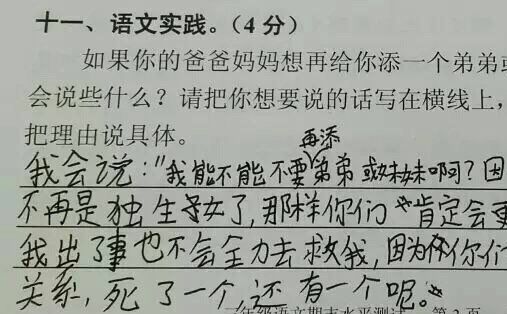 十一、语文实践。(4分)
如果你的爸爸妈妈想再给你添一个弟弟
会说些什么？请把你想要说的话写在横线上，
把理由说具体。
再添
我会说："我能不能不要弟弟或妹妹啊？因
不再是独生子女了，那样你们肯定会更
我出了事也不会全力去救我，因为你们
关系，死了一个，还有一个呢。"
年级语文期末水平测试 第3页